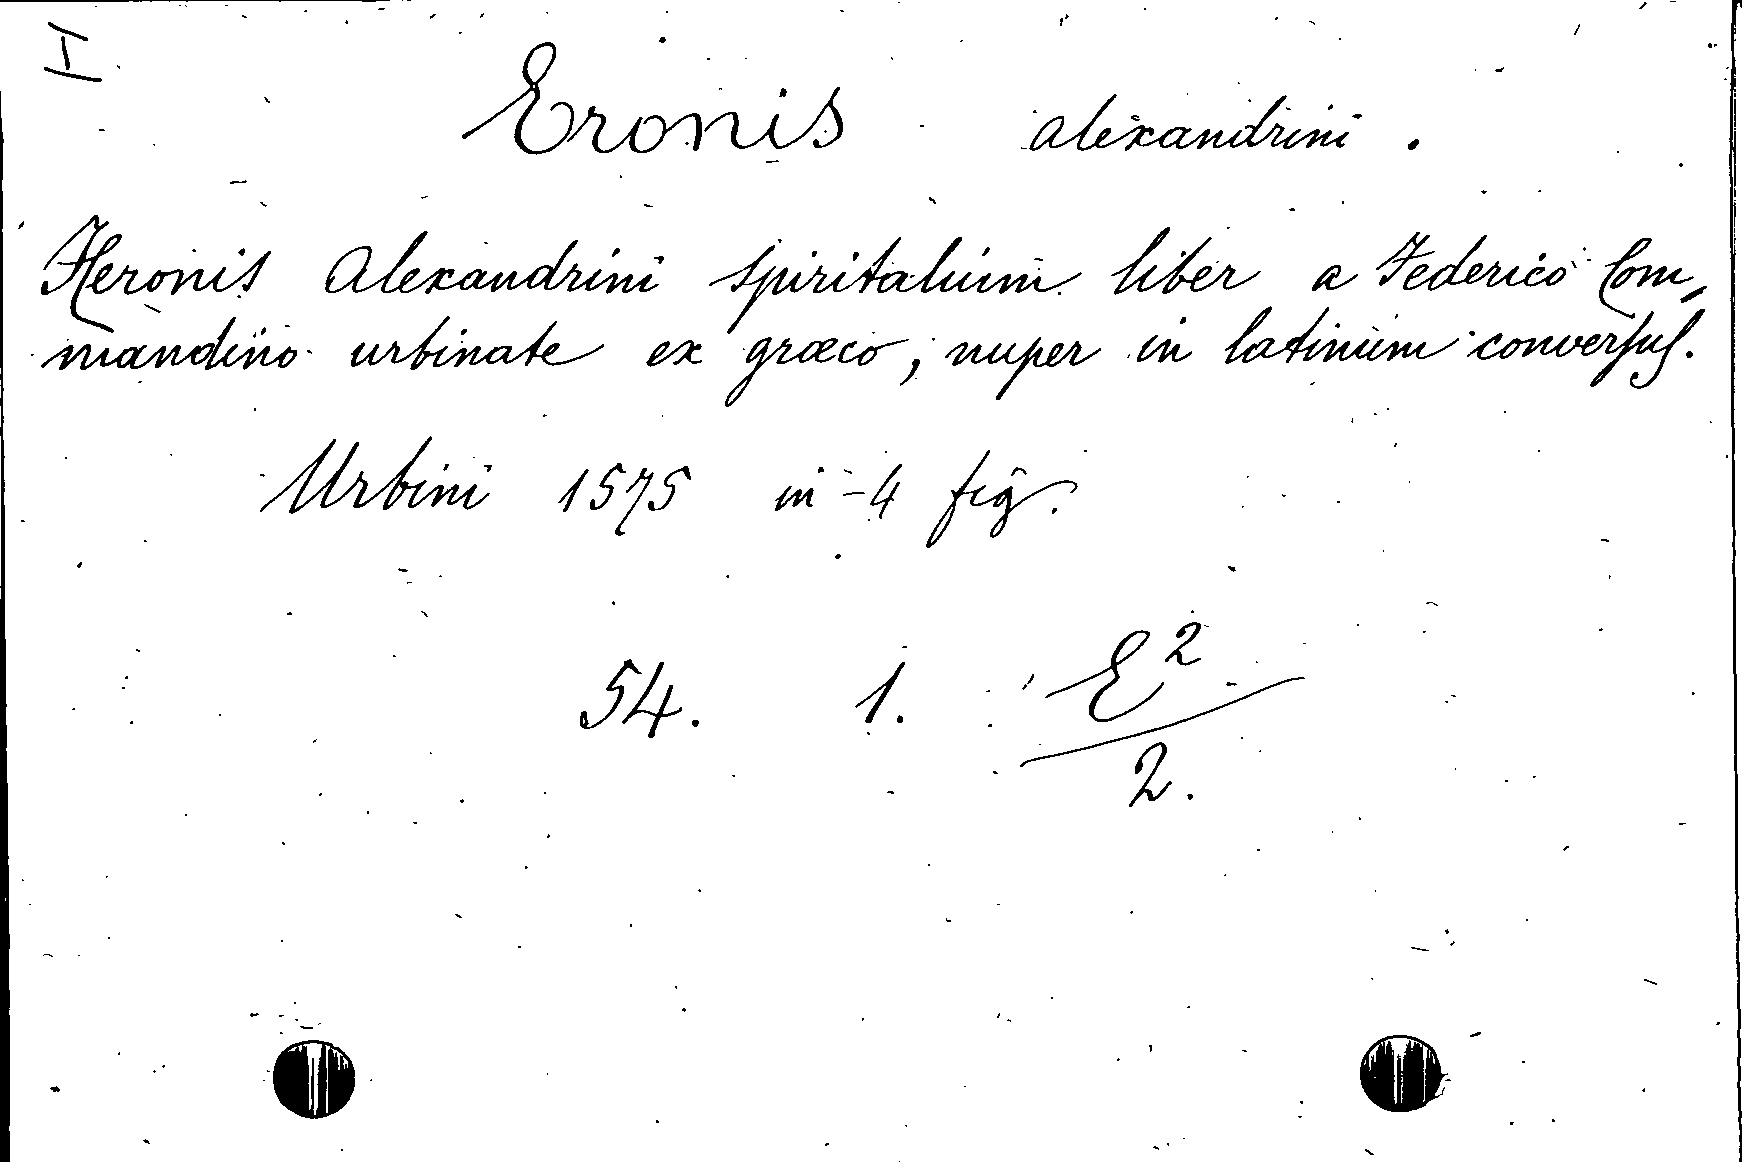 H
Eronis alexandrini.
Heronis Alexandrini spiritalium liber a Federico Com,
mandino urbinate ex græco, nuper in latinum conversus.
Urbini 1575 in-4 fig.
54. 1. E²
2.